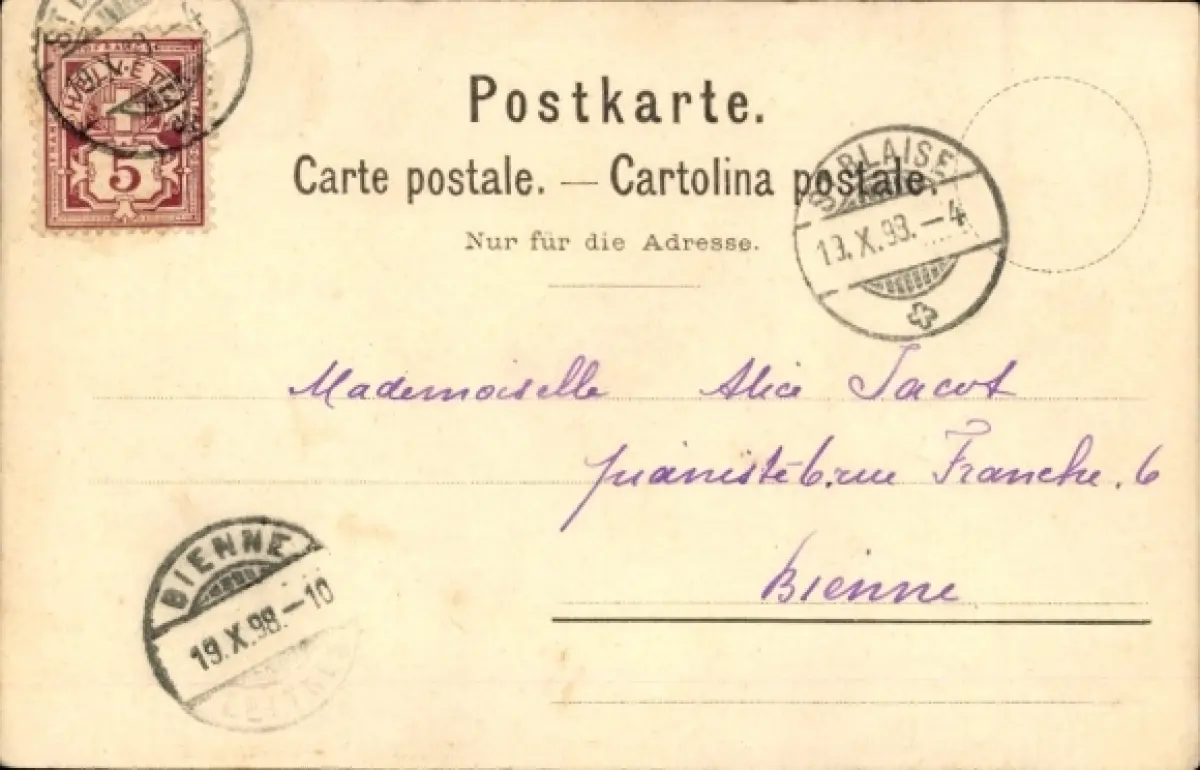 FRANCO
HELVETIA
5
Postkarte.
Carte postale. — Cartolina postale.
Nur für die Adresse.
St. BLAISE
19.X.98.–4
Mademoiselle Alice Jacot
pianiste 6. rue Franche. 6
Bienne
BIENNE
19.X.98.–10